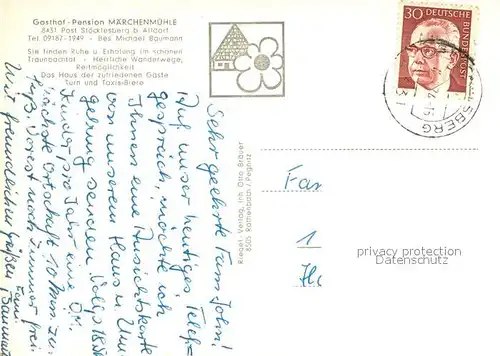 Gasthof - Pension MÄRCHENMÜHLE
8431 Post Stöcklesberg b Altdorf
Tel. 09187-1949 - Bes Michael Baumann
Sie finden Ruhe u Erholung im schönen
Traunbachtal - Herrliche Wanderwege,
Reitmöglichkeit
Das Haus der zufriedenen Gäste
Turn und Taxisi-Biere
30
DEUTSCHE
BUNDESPOST
SBERG
Sehr geehrte Fam John!
Auf unser heutiges Telef-
gespräch, möchte ich
Ihnen eine Ansichtskarte
von unserem Haus u Um
gebung senden.
Kinder pro Jahr eine D.M.
nächste Ortschaft 10 Min zu
Fuß. Vorerst noch Zimmer frei
Mit freundlichen Grüßen
Fam
Baumann
Riegel-Verlag, Inh. Otto Bräuer
8505 Röthenbach / Pegnitz
Fam
1
privacy protection
www.ansichtskartenversand.com